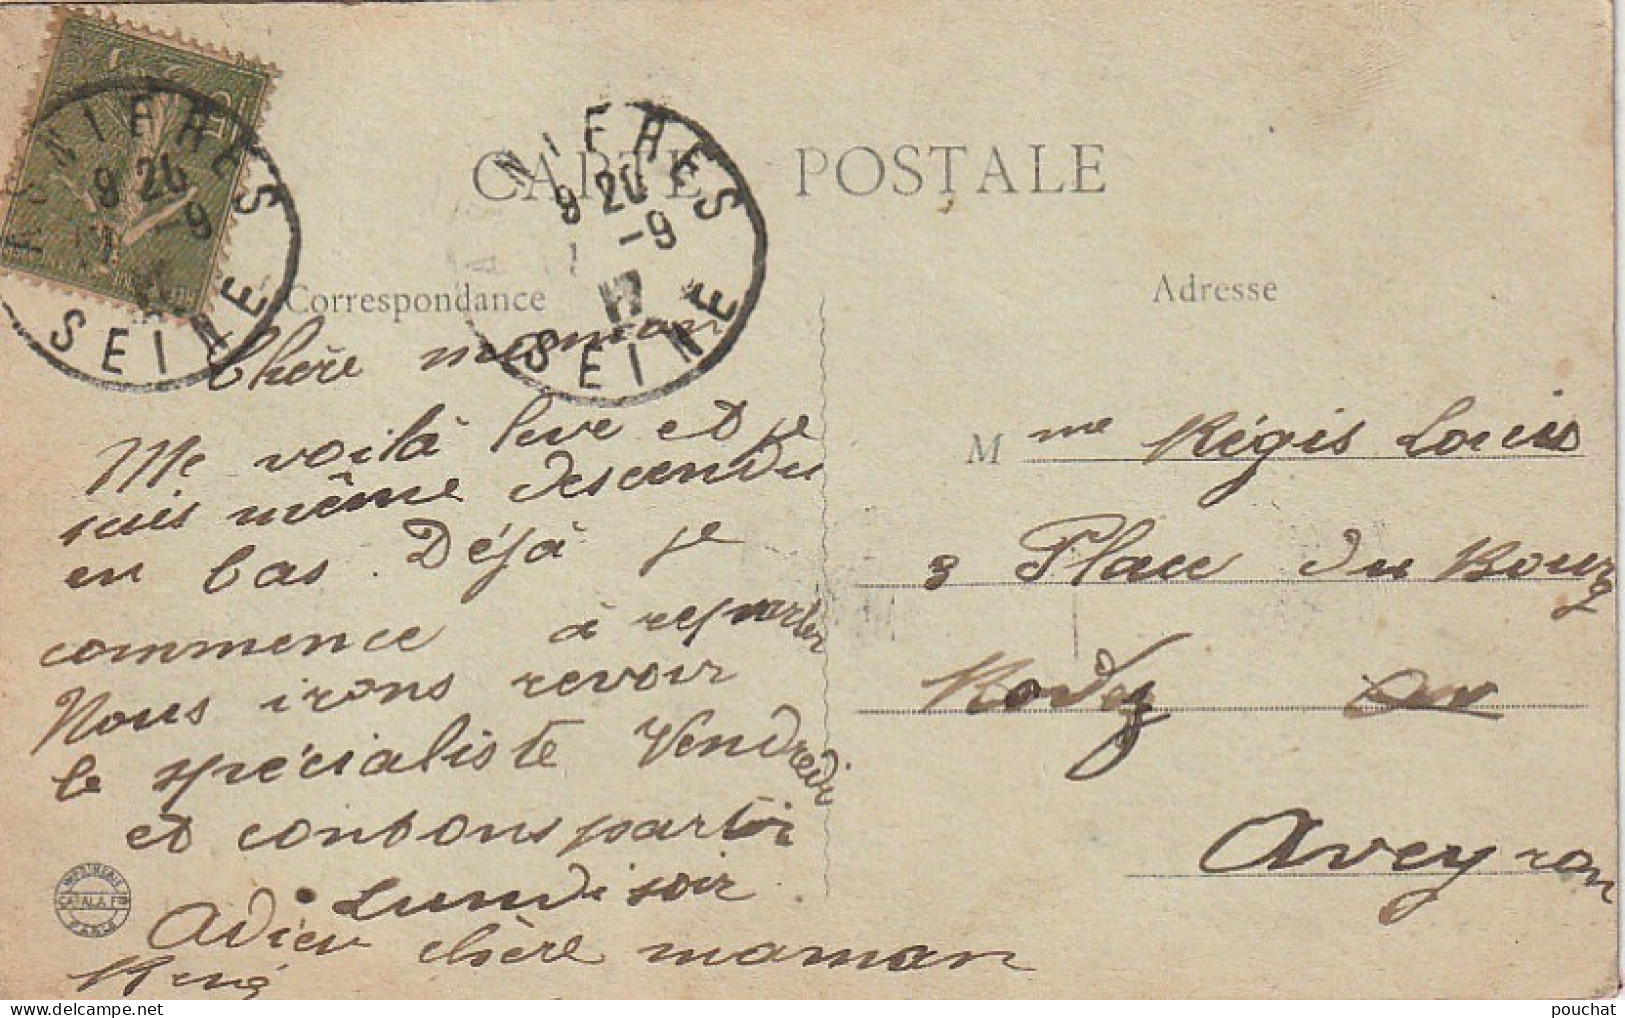 CARTE POSTALE
Correspondance
Adresse
NIÈRES
9 20
-9
17
SEINE
NIÈRES
9 20
-9
SEINE
Chère maman
Me voilà levé et je
suis même descendu
en bas. Déjà je
commence à reparler
Nous irons revoir
le spécialiste Vendredi
et contons partir
Lundi soir
Adieu chère maman
René
Mme Régis Louis
3 Place du Bourg
Rodez
Aveyron
IMPRIMERIE
CATALA FR
PARIS
pouchat